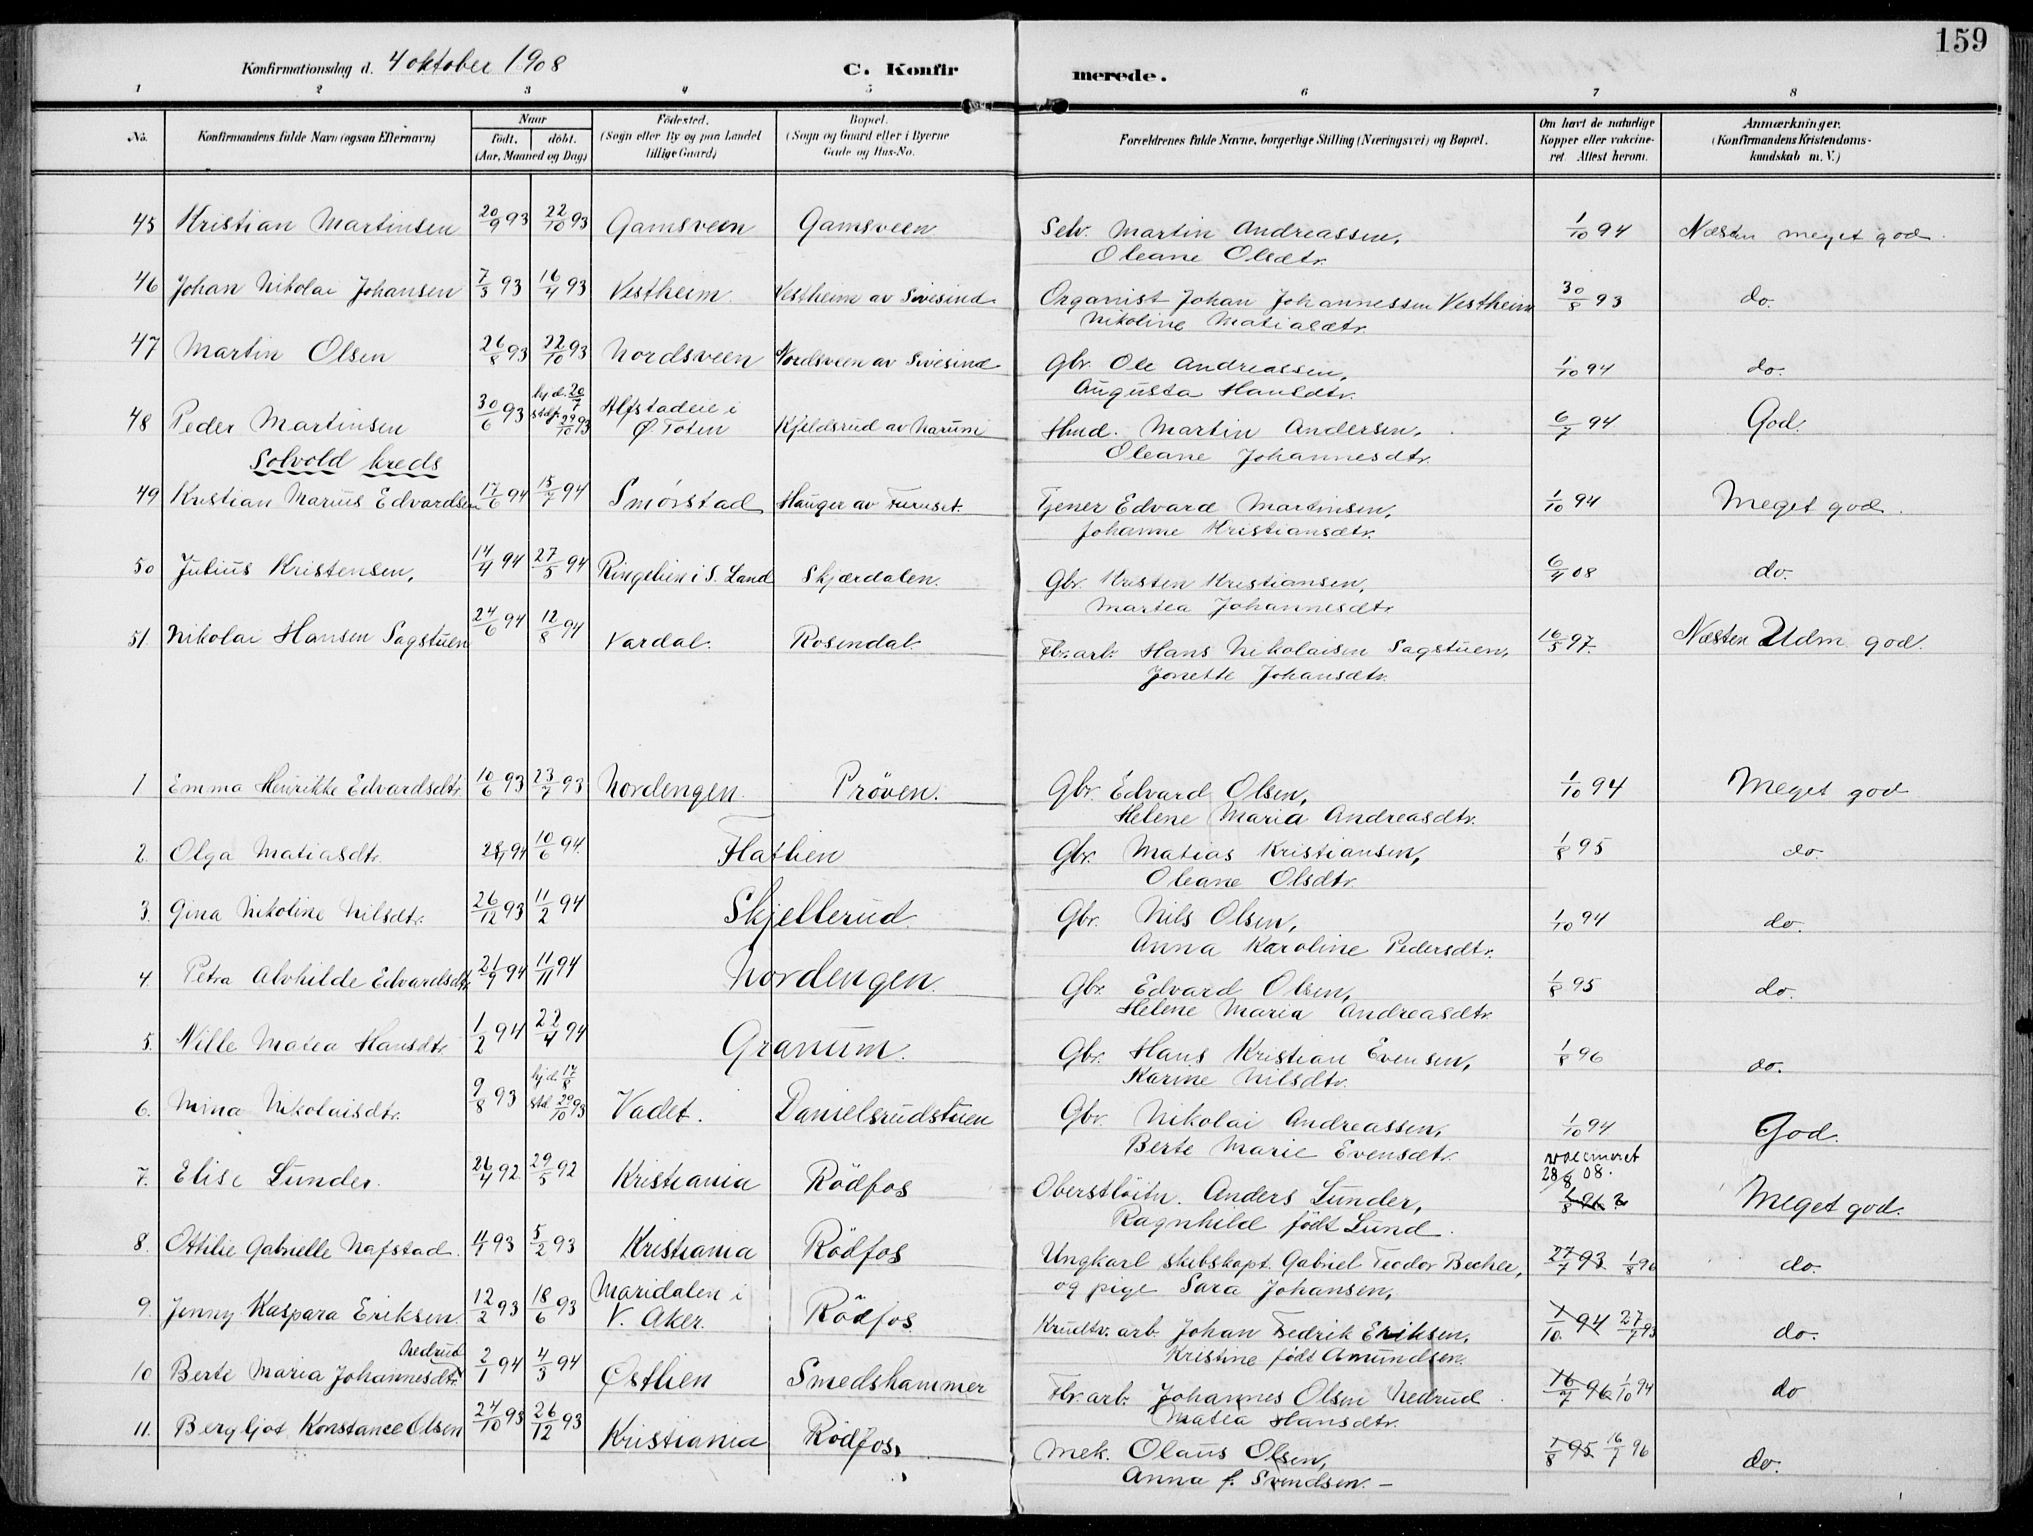 159
Konfirmationsdag d. 4 oktober 1908 C. Konfirmerede.
1 2 3 4 5 6 7 8
No. Konfirmandens fulde Navn (ogsaa Efternavn) Naar født. døbt. (Aar, Maaned og Dag) Fødested. (Sogn eller By og paa Landet tillige Gaard) Bopæl. (Sogn og Gaard eller i Byerne Gade og Hus-No. Forældrenes fulde Navne, borgerlige Stilling (Næringsvei) og Bopæl. Om havt de naturlige Kopper eller vakcineret. Attest herom. Anmærkninger. (Konfirmandens Kristendomskundskab m. V.)
45 Kristian Martinsen 20/9 93 22/10 93 Gamsveen Gamsveen Selv. Martin Andreassen, 1/10 94 Næsten meget god.
Oleane Olsdtr.
46 Johan Nikolai Johansen 7/3 93 16/4 93 Vestheim. Vestheim av Sivesind. Organist Johan Johannessen Vestheim 30/8 93 do.
Nikoline Matiasdtr.
47 Martin Olsen 26/8 93 22/10 93 Nordsveen Nordsveen av Sivesind Gbr. Ole Andreassen, 1/10 94 do.
Augusta Hansdtr.
48 Peder Martinsen 30/6 93 hj.d. 20/7 stdf. 29/10 93 Alfstadeie i Ø. Toten Kjeldsrud av Narum Hmd. Martin Andersen, 6/7 94 God.
Oleane Johannesdtr.
Solvold kreds
49 Kristian Marius Edvardsen 17/6 94 15/7 94 Smørstad Hauger av Furuset. Tjener Edvard Martinsen, 1/10 94 Meget god.
Johanne Kristiansdtr.
50 Julius Kristensen, 14/4 94 27/5 94 Ringelien i S. Land Skjærdalen. Gbr. Kristen Kristiansen, 6/4 08 do.
Martea Johannesdtr.
51. Nikolai Hansen Sagstuen 24/6 94 12/8 94 Vardal. Rosendal. Fbr. arb. Hans Nikolaisen Sagstuen, 16/5 97. Næsten Udm. god.
Jonette Johansdtr.
1 Emma Henrikke Edvardsdtr. 10/6 93 23/7 93 Nordengen. Prøven. Gbr. Edvard Olsen, 1/10 94 Meget god
Helene Maria Andreasdtr.
2. Olga Matiasdtr. 28/4 94 10/6 94. Flatlien Gbr. Matias Kristiansen, 1/8 95 do.
Oleane Olsdtr.
3. Gina Nikoline Nilsdtr. 26/12 93 11/2 94 Skjellerud. Gbr. Nils Olsen, 1/10 94 do.
Anna Karoline Pedersdtr.
4. Petra Alvhilde Edvardsdtr. 21/9 94 11/11 94 Nordengen. Gbr. Edvard Olsen, 1/8 95 do.
Helene Maria Andreasdtr.
5. Nille Matea Hansdtr. 1/2 94 22/4 94 Granum. Gbr. Hans Kristian Evensen, 1/8 96 do.
Karine Nilsdtr.
6. Mina Nikolaisdtr. 9/8 93 hj.d. 17/8 std. 29/10 93 Vadet. Danielsrudstuen Gbr. Nikolai Andreassen, 1/10 94 God.
Berte Marie Evensdtr.
7. Elise Lunder. 26/4 92 29/5 92 Kristiania Rödfos Oberstlöitn. Anders Lunder, vaccineret 28/8 08. 1/8 96 2 Meget god.
Ragnhild født Lund.
8. Ottilie Gabrielle Nafstad. 4/1 93 5/2 93 Kristiania Rödfos Ungkarl skibskapt. Gabriel Teodor Becher, 27/7 93 1/8 96 do.
og pige Sara Johansen,
9. Jenny Kaspara Eriksen. 12/2 93 18/6 93 Maridalen i V. Aker. Rödfos. Krudtv. arb. Johan Fredrik Eriksen, 1/10 94 27/7 93 do.
Kristine født Amundsen.
10 Berte Maria Johannesdtr. Nedrud 2/1 94 4/3 94 Østlien Smedshammer Fbr. arb. Johannes Olsen Nedrud. 16/7 96 1/10 94 do
Matea Hansdtr.
11. Bergljot Konstance Olsen 24/10 93 26/12 93 Kristiania Rödfos. Mek. Olaus Olsen, 1/8 95 16/7 96 do.
Anna f. Svendsen. –